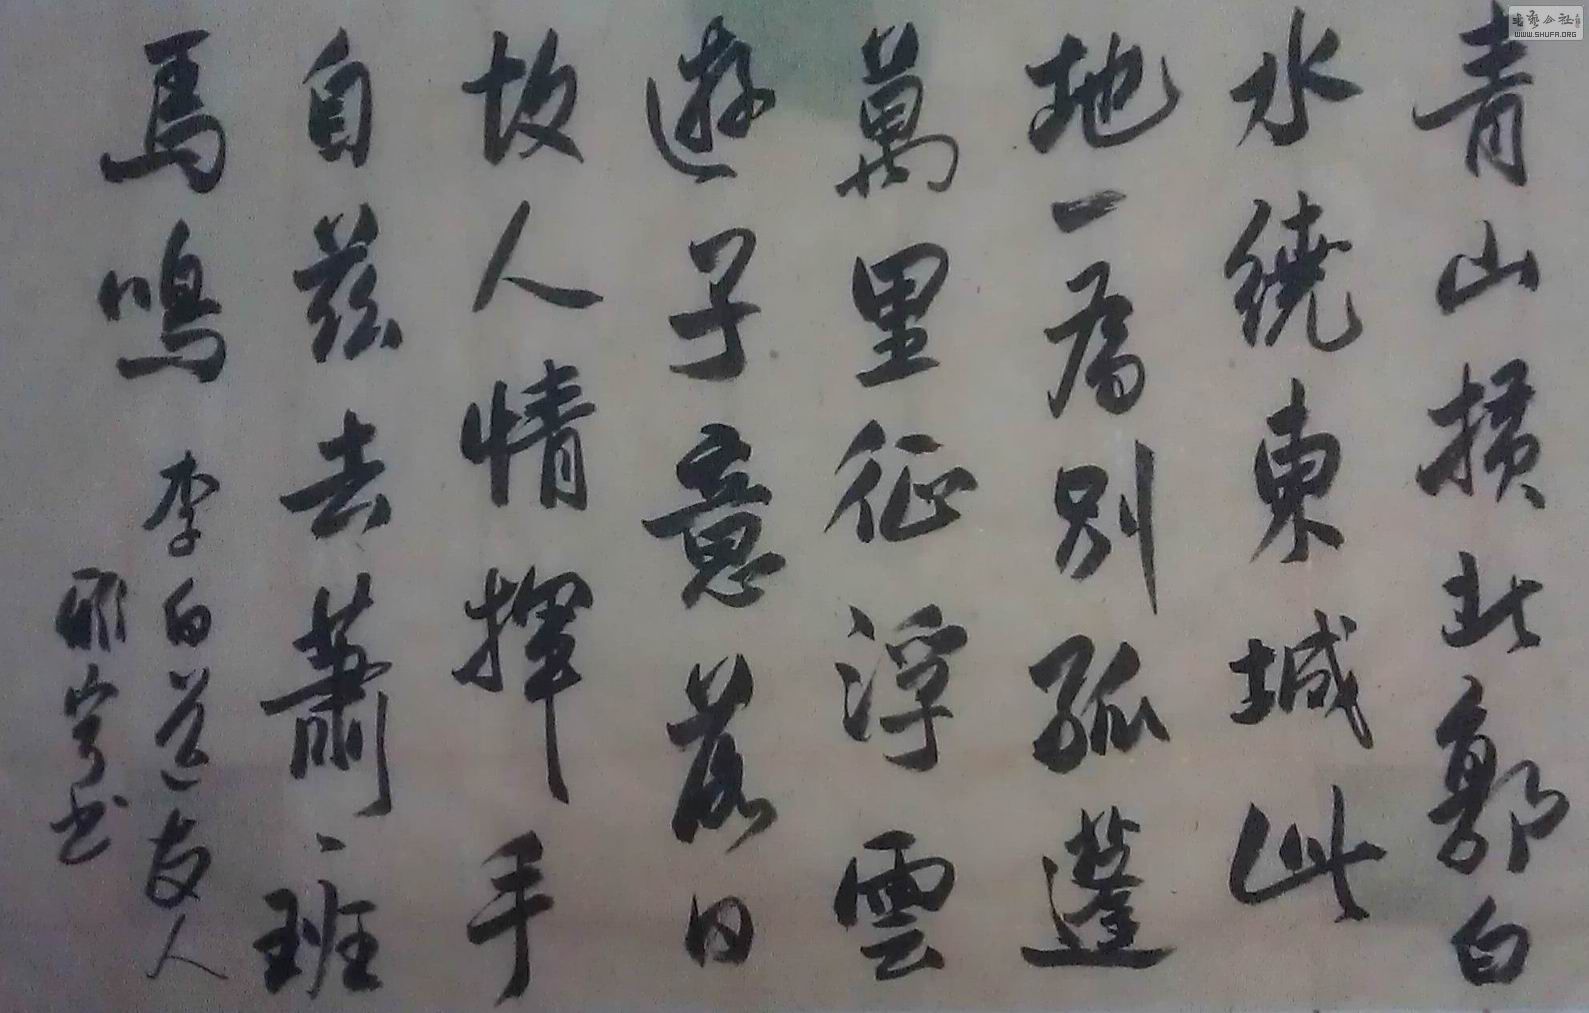 青山横北郭白
水繞東城此
地一為别孤蓬
萬里征浮雲
遊子意落日
故人情揮手
自兹去蕭々班
馬鳴 李白送友人
书
书艺公社
WWW.SHUFA.ORG